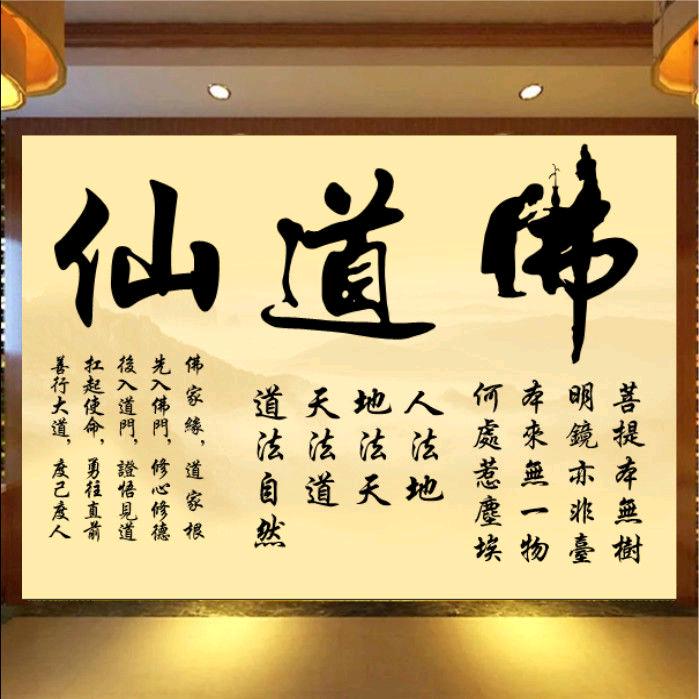 佛道仙
菩提本無樹
明鏡亦非臺
本來無一物
何處惹塵埃
人法地
地法天
天法道
道法自然
佛家緣，道家根
先入佛門，修心修德
後入道門，證悟見道
扛起使命，勇往直前
善行大道，度己度人